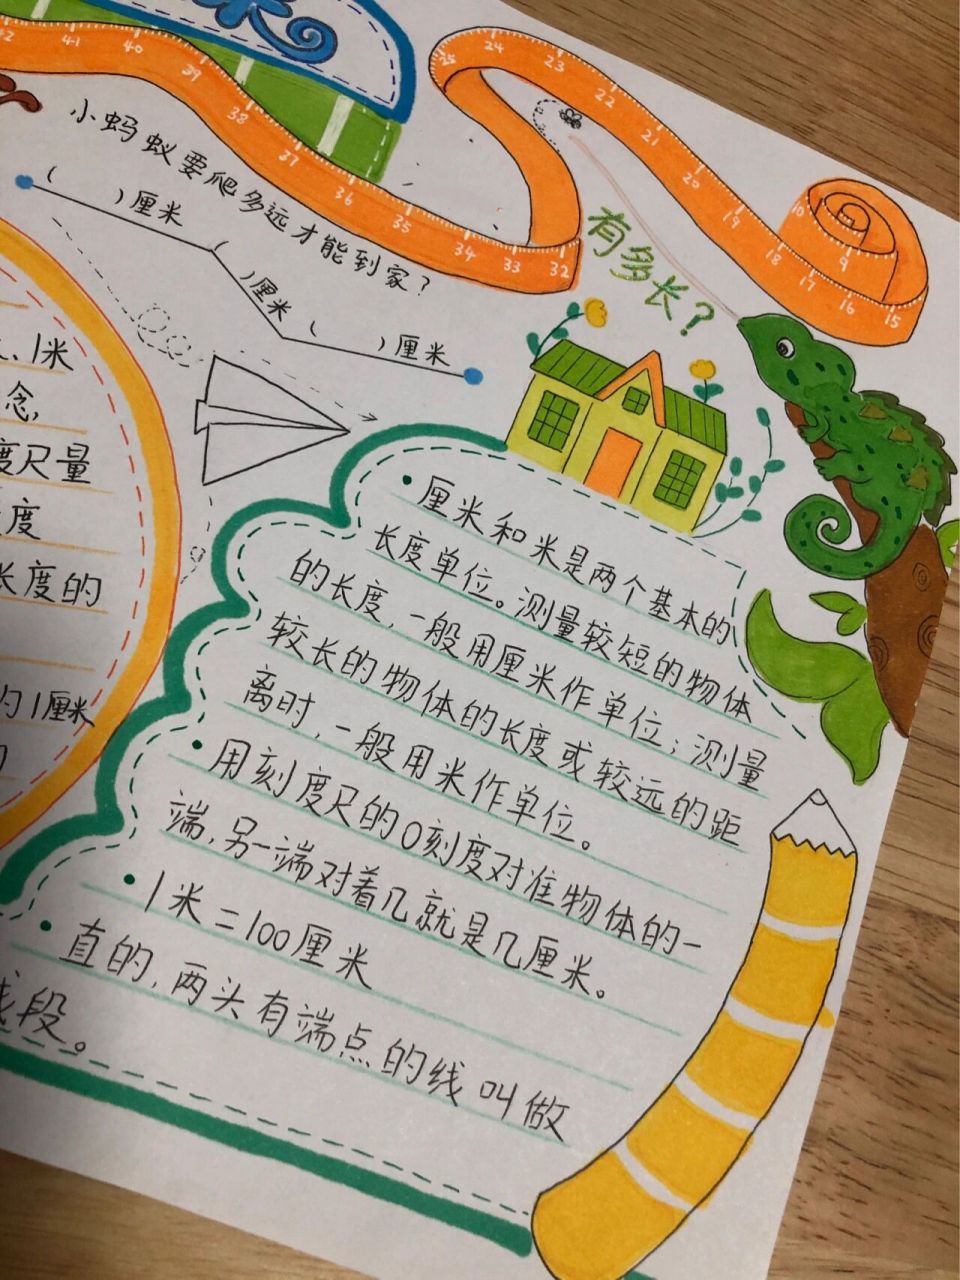 米
42 41 40 39 38 37 36 35 34 33 32
25 24 23 22 21 20 19 18 17 16 15
10 9
小蚂蚁要爬多远才能到家?
( )厘米
( )厘米
( )厘米
有多长?
、1米
念,
度尺量
度
长度的
的1厘米
• 厘米和米是两个基本的
长度单位。测量较短的物体
的长度,一般用厘米作单位;测量
较长的物体的长度或较远的距
离时,一般用米作单位。
• 用刻度尺的0刻度对准物体的一
端,另一端对着几就是几厘米。
• 1米=100厘米
• 直的,两头有端点的线叫做
线段。